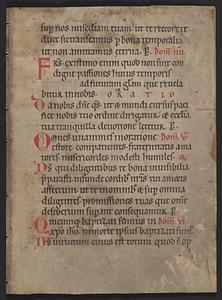 sup nos miscdiam tuam. ut te rectore te
duce sic transeamus p bona temporalia
ut non amittamus eterna. P. Dom. iiii.
Frs. Existimo enim quod non sunt con
digne passiones huius temporis
ad futuram głam que reuela
bitur in nobis. O R A T I O
Da nobis dne qs. ut & mundi cursus paci
fice nobis tuo ordine dirigatur. & ecclia
tua tranquilla deuotione letetur. P. Dom. V.
Omnes unanimes in oratione
estote. compatientes. fraternitatis ama
tores. misericordes modesti humiles. O
Ds qui diligentibus te bona inuisibilia
pparasti. infunde cordib; nris tui amoris
affectum. ut te in omnib; & sup omnia
diligentes. promissiones tuas que omne
desiderium supant consequamur. P.
Quicumq; baptizati sumus in Dom. VI.
xpo ihu. in morte ipsius baptizati sum;
Ds uirtutum cuius est totum quod e op